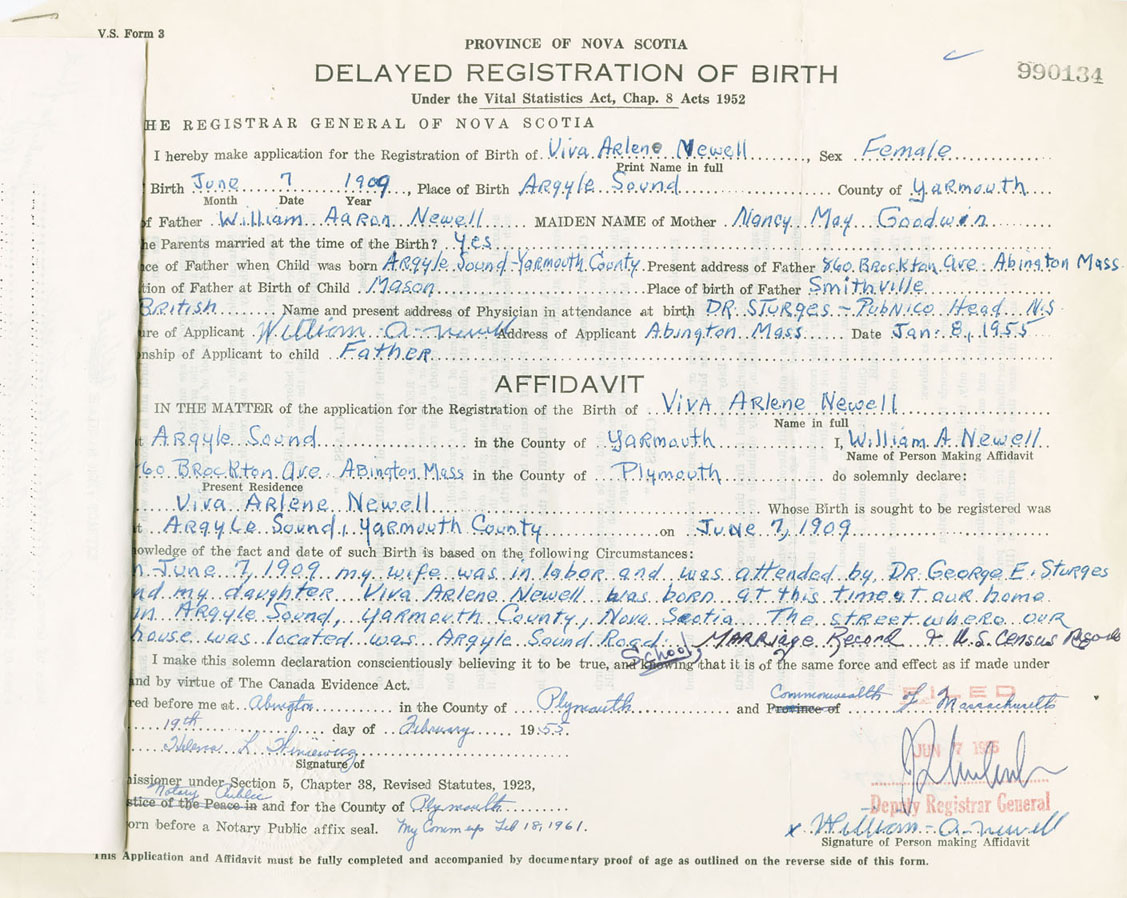 V.S. Form 3
PROVINCE OF NOVA SCOTIA
DELAYED REGISTRATION OF BIRTH
990134
Under the Vital Statistics Act, Chap. 8 Acts 1952
HE REGISTRAR GENERAL OF NOVA SCOTIA
I hereby make application for the Registration of Birth of Viva Arlene Newell, Sex Female
Print Name in full
Birth June 7 1909, Place of Birth Argyle Sound County of Yarmouth
Month Date Year
f Father William Aaron Newell MAIDEN NAME of Mother Nancy May Goodwin
he Parents married at the time of the Birth? Yes
ce of Father when Child was born Argyle Sound-Yarmouth County Present address of Father 860 Brockton Ave. Abington Mass
tion of Father at Birth of Child Mason Place of birth of Father Smithville
British Name and present address of Physician in attendance at birth DR. Sturges - Pubnico Head N.S
ure of Applicant William A. Newell Address of Applicant Abington Mass Date Jan. 8, 1955
nship of Applicant to child Father
AFFIDAVIT
IN THE MATTER of the application for the Registration of the Birth of Viva Arlene Newell
Name in full
t Argyle Sound in the County of Yarmouth I, William A. Newell
Name of Person Making Affidavit
60 Brockton Ave. Abington Mass in the County of Plymouth do solemnly declare:
Present Residence
Viva Arlene Newell Whose Birth is sought to be registered was
t Argyle Sound, Yarmouth County on June 7, 1909
owledge of the fact and date of such Birth is based on the following Circumstances:
n June 7, 1909 my wife was in labor and was attended by DR. George E. Sturges
nd my daughter Viva Arlene Newell was born at this time at our home
in Argyle Sound, Yarmouth County, Nova Scotia. The street where our
house was located was Argyle Sound Road. School, Marriage Record & U.S. Census Records
I make this solemn declaration conscientiously believing it to be true, and knowing that it is of the same force and effect as if made under
nd by virtue of The Canada Evidence Act.
red before me at Abington in the County of Plymouth and Province of Commonwealth of Massachusetts
FILED
19th day of February 1955.
Signature of
JUN 7
issioner under Section 5, Chapter 38, Revised Statutes, 1923,
Notary Public
stice of the Peace in and for the County of Plymouth
Deputy Registrar General
orn before a Notary Public affix seal. My Comm exp Feb 18, 1961.
x William A. Newell
Signature of Person making Affidavit
This Application and Affidavit must be fully completed and accompanied by documentary proof of age as outlined on the reverse side of this form.